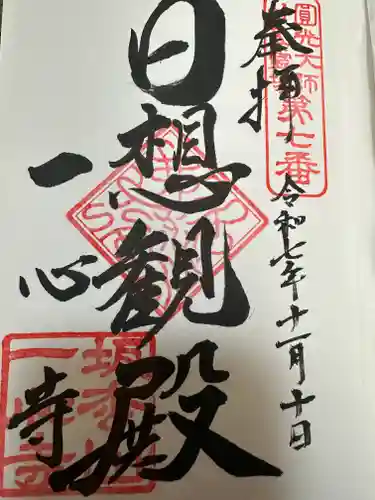 奉拝
令和七年十一月十日
圓光大師第七番
日想観殿
一心寺